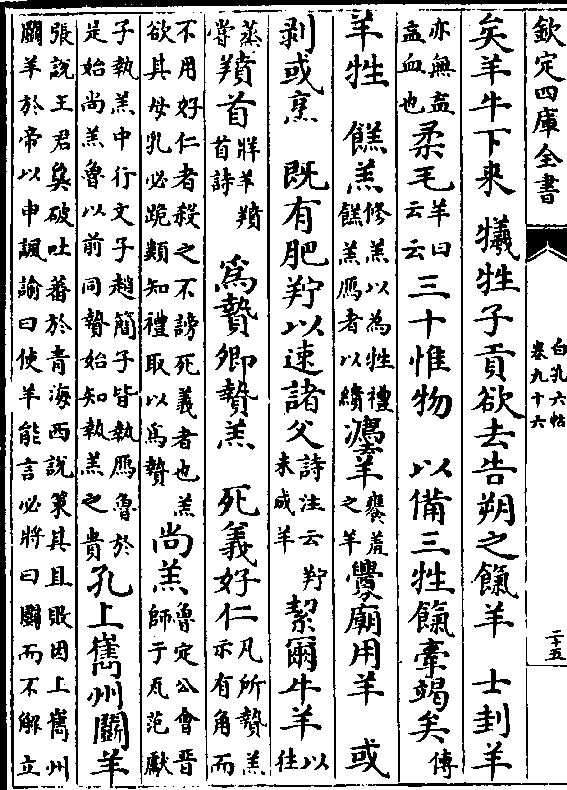 欽定四庫全書
白孔六帖
卷九十六
二十五
矣羊牛下來 犧牲子貢欲去告朔之餼羊 士刲羊
亦無衁
衁血也
柔毛
羊曰
云云
三十惟物 以備三牲餼牽竭矣
傳
羊牲 餙羔
修羔以為牲禮
餙羔鴈者以繢
羣
之羊
釁廟用羊 或
剥或烹 既有肥羜以速諸父
詩注云羜
未成羊
絜爾牛羊
以
往
蒸
嘗
羵首
牂羊羵
首詩
為贄卿贄羔 死義好仁
凡所贄羔
示有角而
不用好仁者殺之不謗死義者也羔
欲其母乳必跪類知禮取以為贄
尚羔
魯定公會晉
師于瓦范獻
子執羔中行文子趙簡子皆執鴈魯於
是始尚羔魯以前同贄始知執羔之貴
孔上巂州鬭羊
張說王君㚟破吐蕃於青海西說策其且敗因上巂州
鬭羊於帝以申諷諭曰使羊能言必將曰鬭而不解立